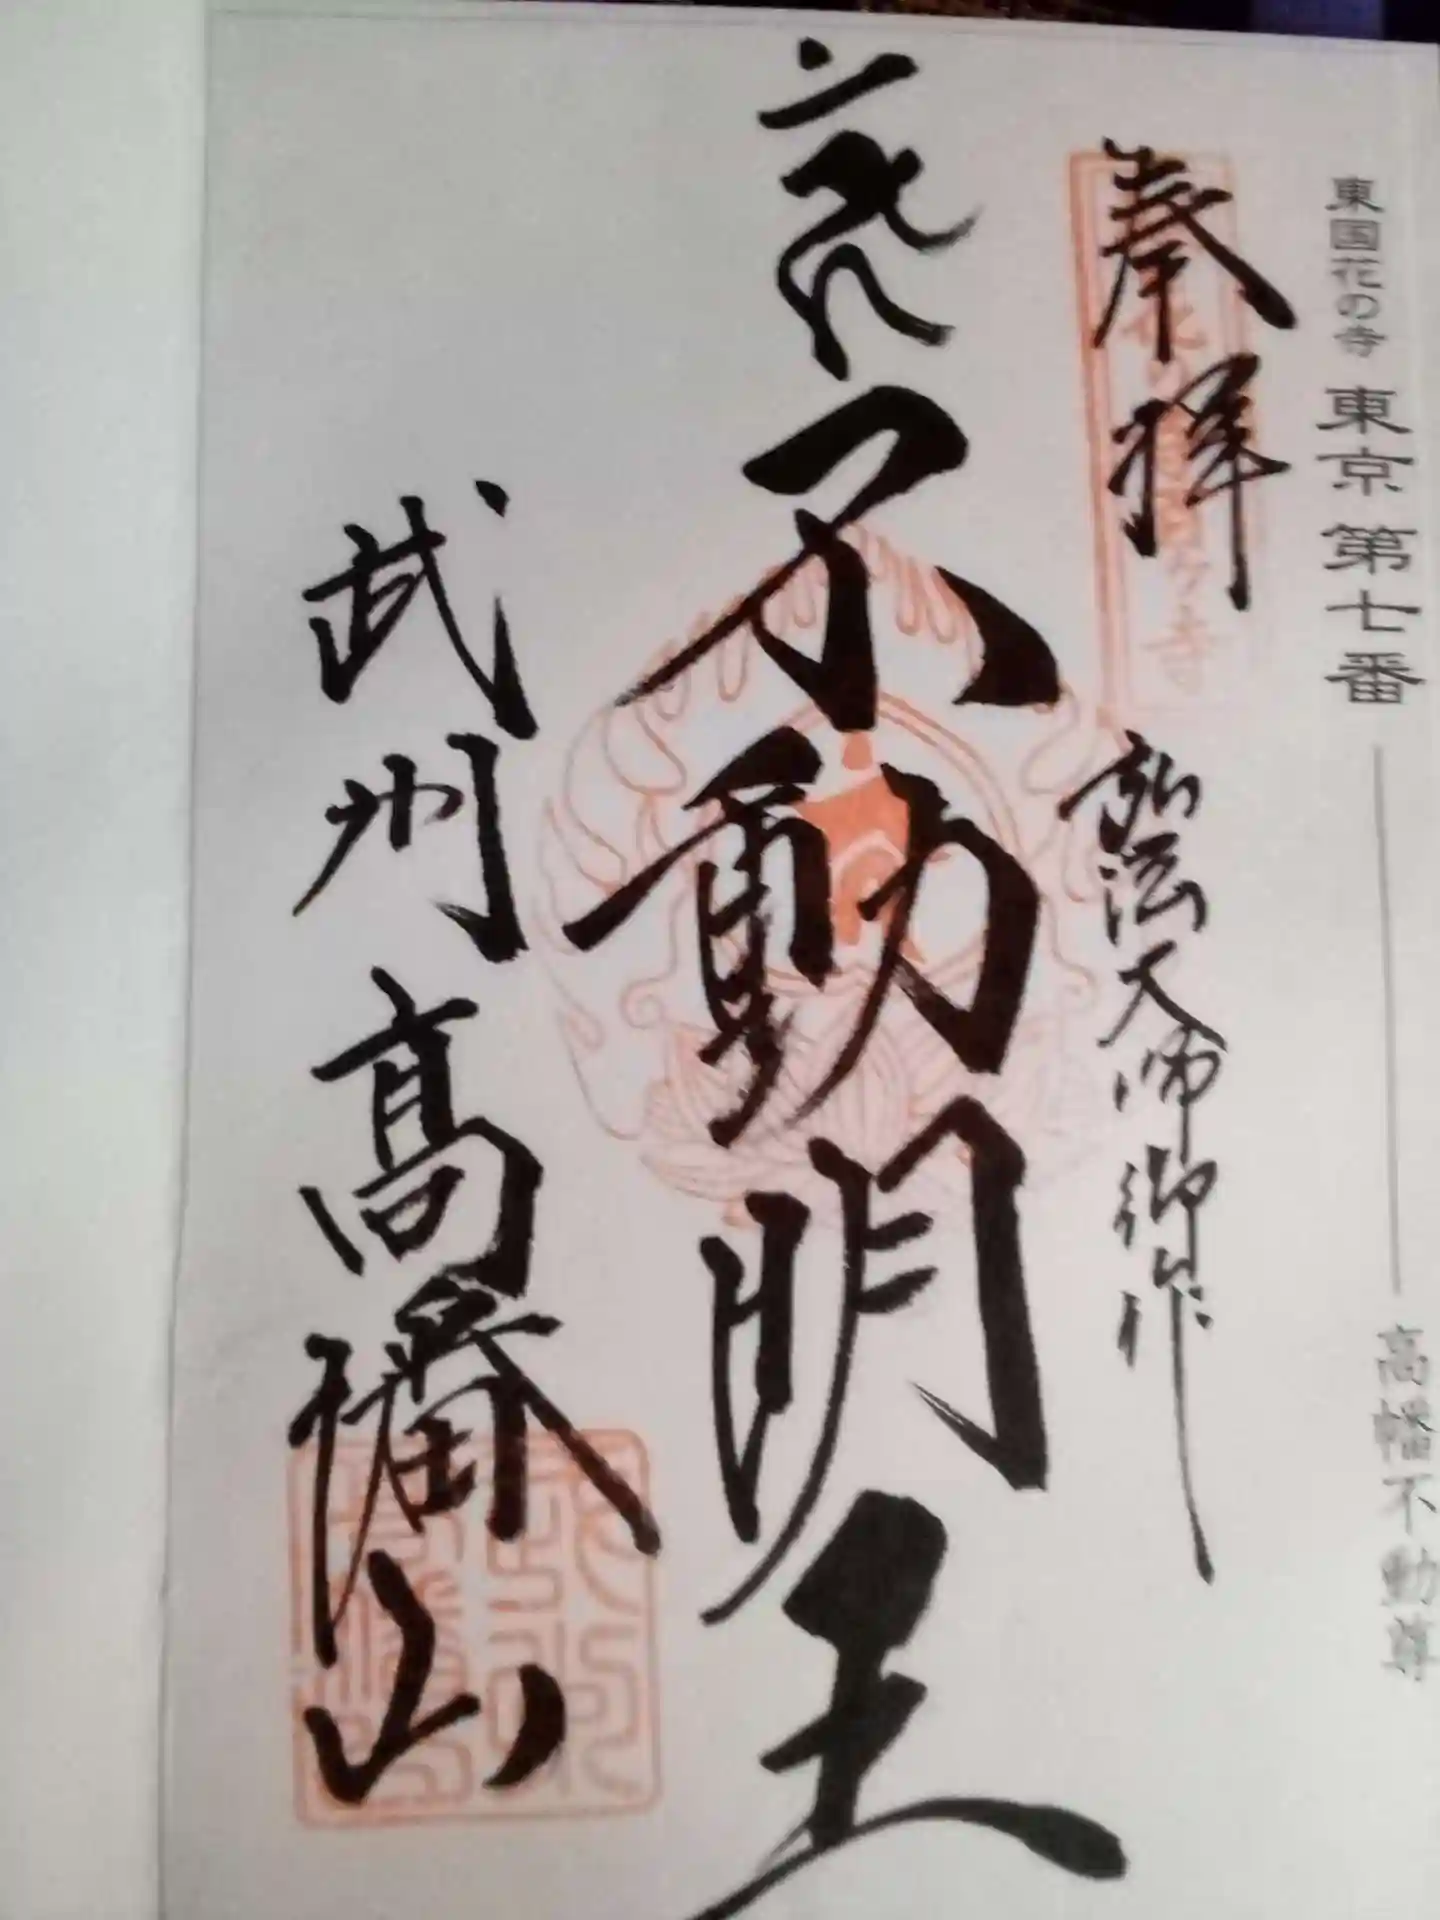 東国花の寺 東京 第七番 高幡不動尊
奉拝
弘法大師御作
不動明王
武州高幡山